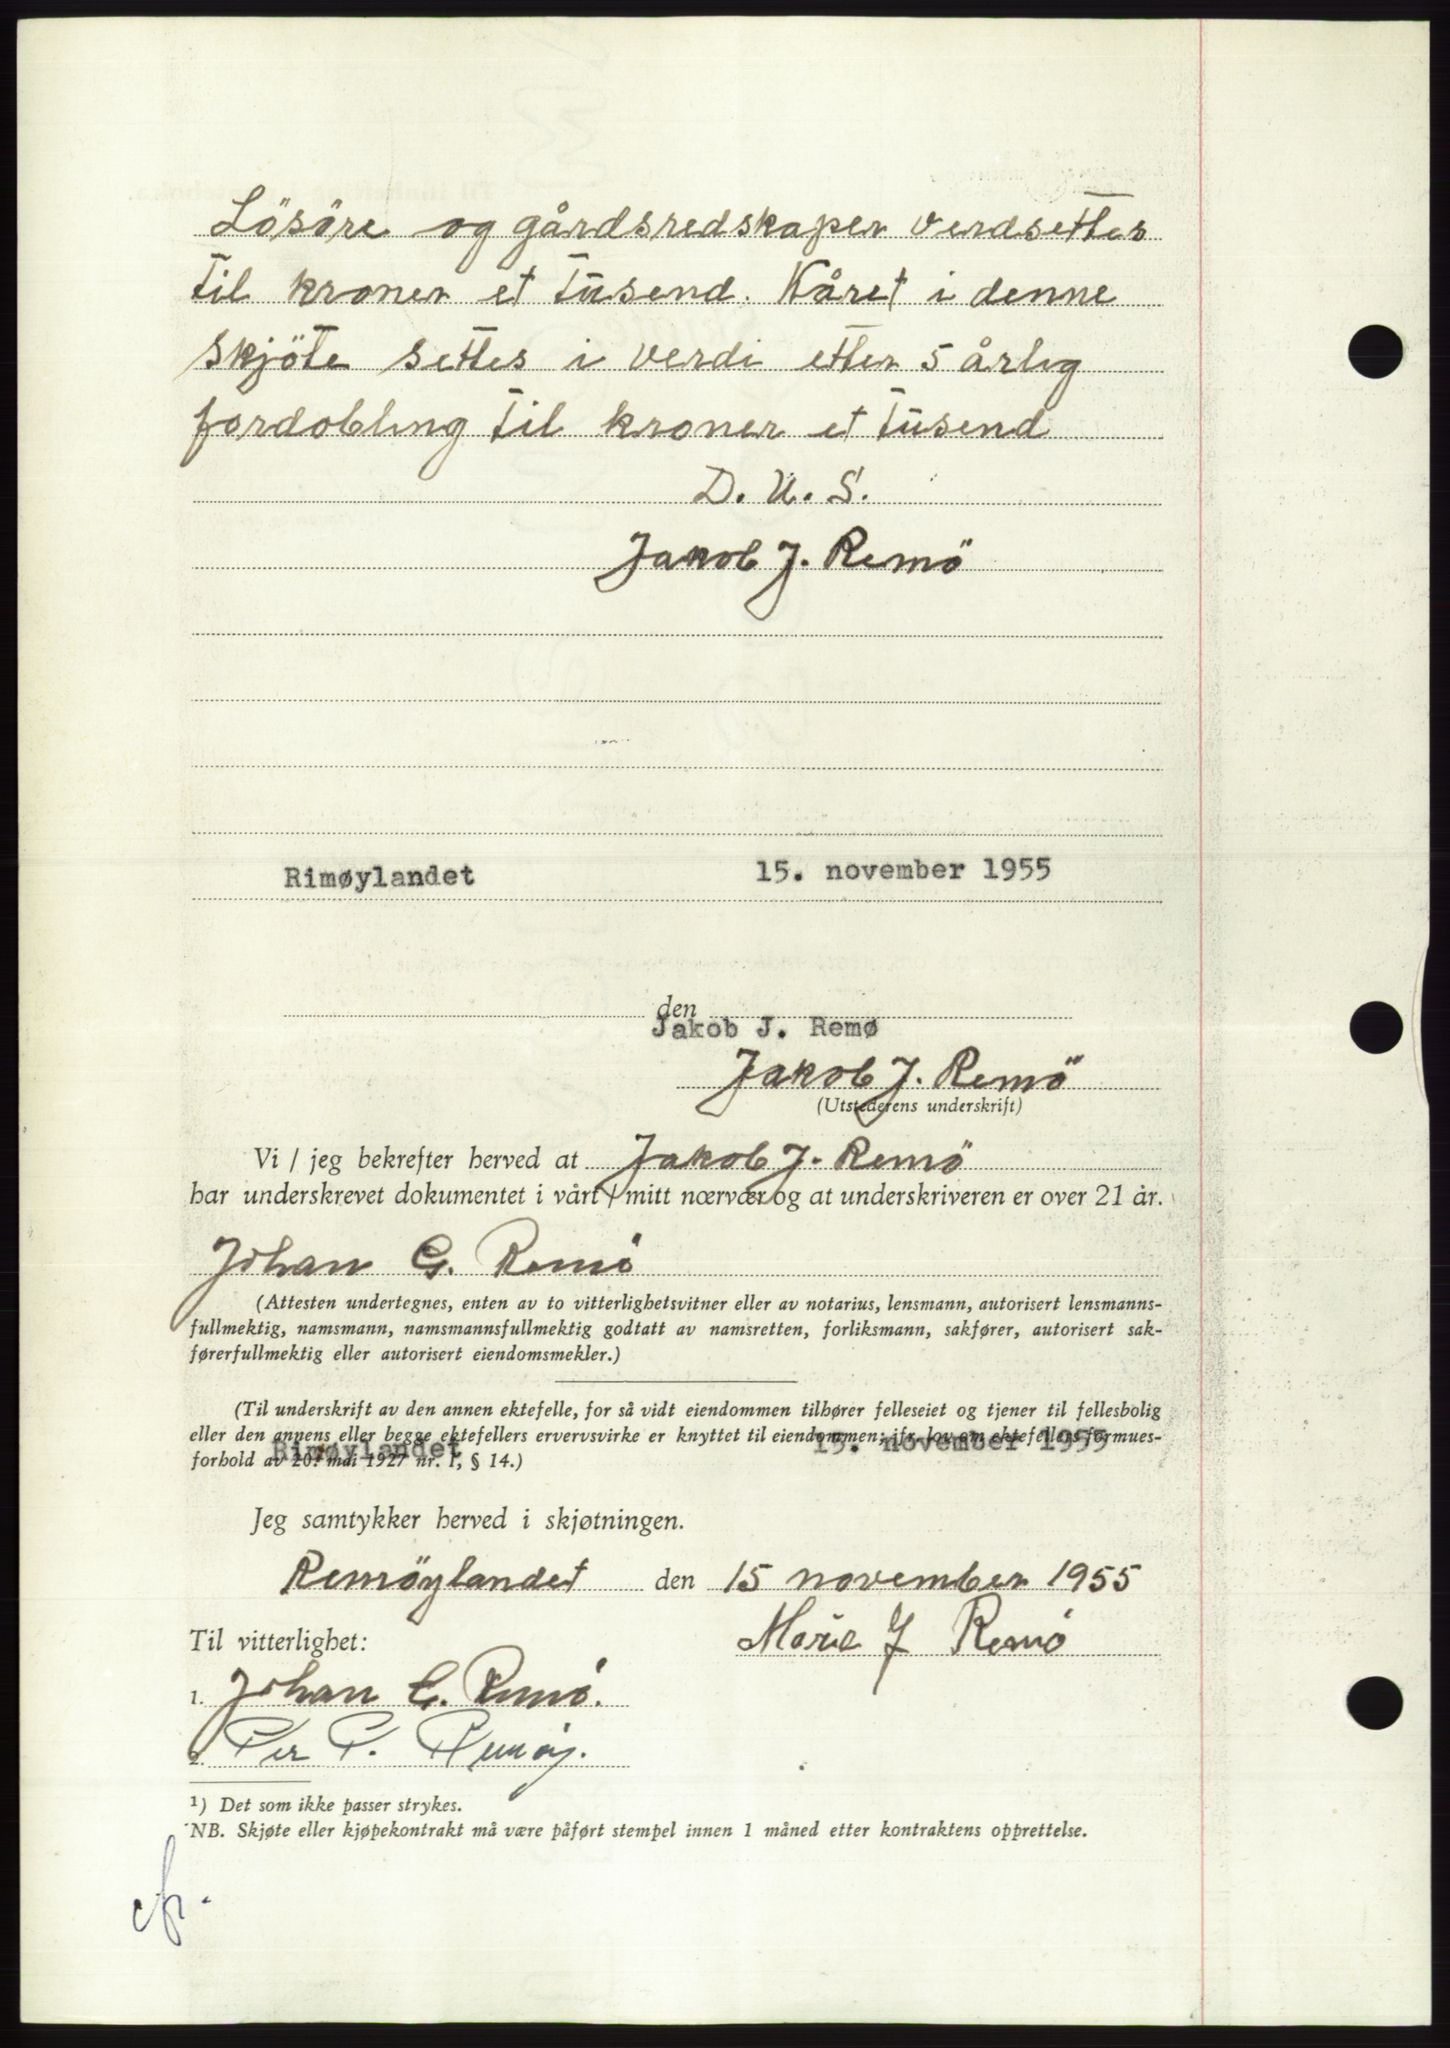 Lösöre og gårdsredskaper verdsettes
til kroner et tusend. Kåret i denne
skjöte settes i verdi etter 5 årlig
fordobling til kroner et tusend
D. U. S.
Jakob J. Remö
Rimøylandet 15. november 1955
den
Jakob J. Remø
Jakob J. Remö
(Utstederens underskrift)
Vi / jeg bekrefter herved at Jakob J. Remö
har underskrevet dokumentet i vårt / mitt nærvær og at underskriveren er over 21 år.
Johan G. Remö
(Attesten undertegnes, enten av to vitterlighetsvitner eller av notarius, lensmann, autorisert lensmanns-
fullmektig, namsmann, namsmannsfullmektig godtatt av namsretten, forliksmann, sakfører, autorisert sak-
førerfullmektig eller autorisert eiendomsmekler.)
(Til underskrift av den annen ektefelle, for så vidt eiendommen tilhører felleseiet og tjener til fellesbolig
eller den annens eller begge ektefellers ervervsvirke er knyttet til eiendommen; jfr. lov om ektefellers formues-
Rimøylandet 15. november 1955
forhold av 20. mai 1927 nr. 1, § 14.)
Jeg samtykker herved i skjøtningen.
Remöylandet den 15 november 1955
Til vitterlighet: Marie J Remö
1. Johan G. Remö.
2. Per P. Remøy.
1) Det som ikke passer strykes.
NB. Skjøte eller kjøpekontrakt må være påført stempel innen 1 måned etter kontraktens opprettelse.